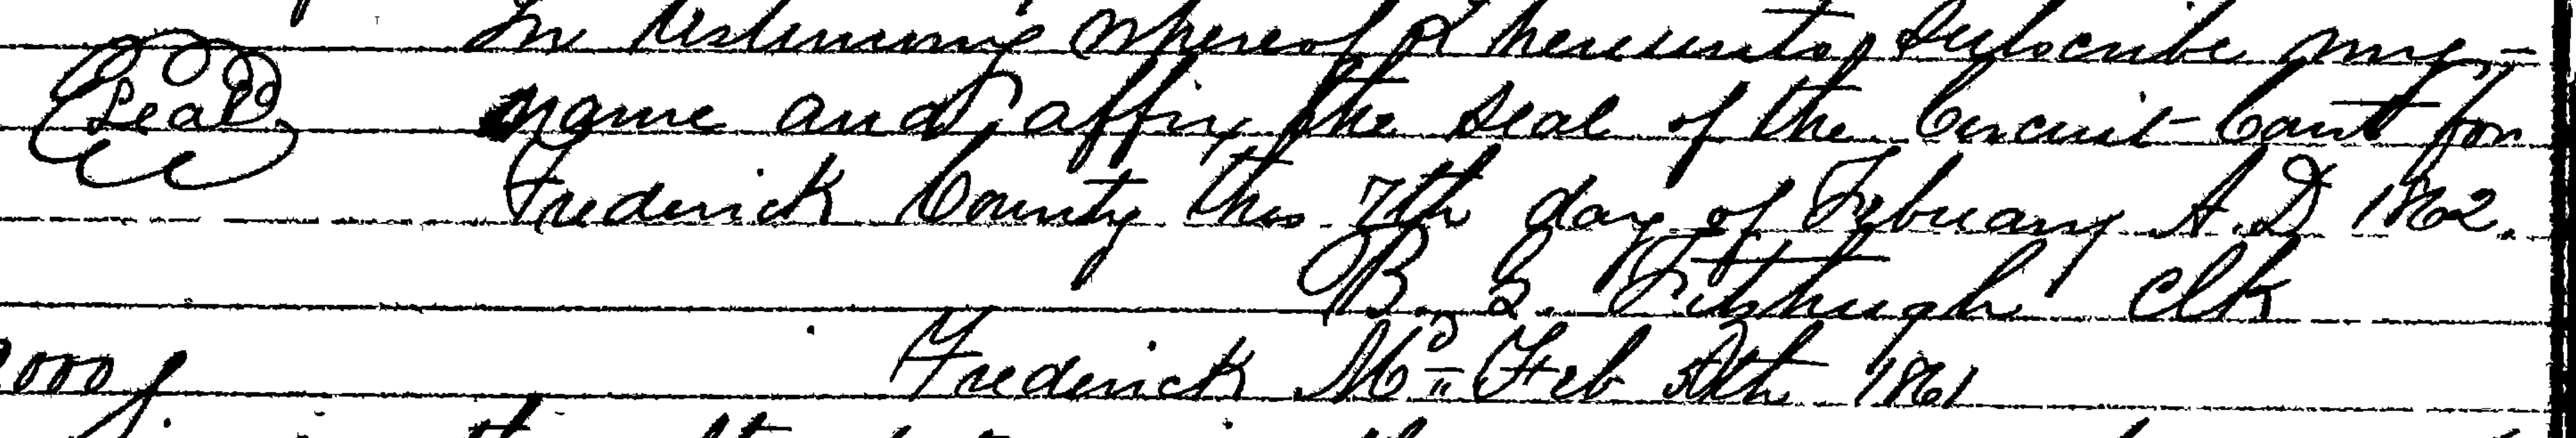 In testimony whereof I hereunto subscribe my-
Seal name and affix the seal of the Circuit Court for
Frederick County this 7th day of Febuary A.D 1862.
B. G. Fitzhugh Clk
Frederick Md Feb 1861